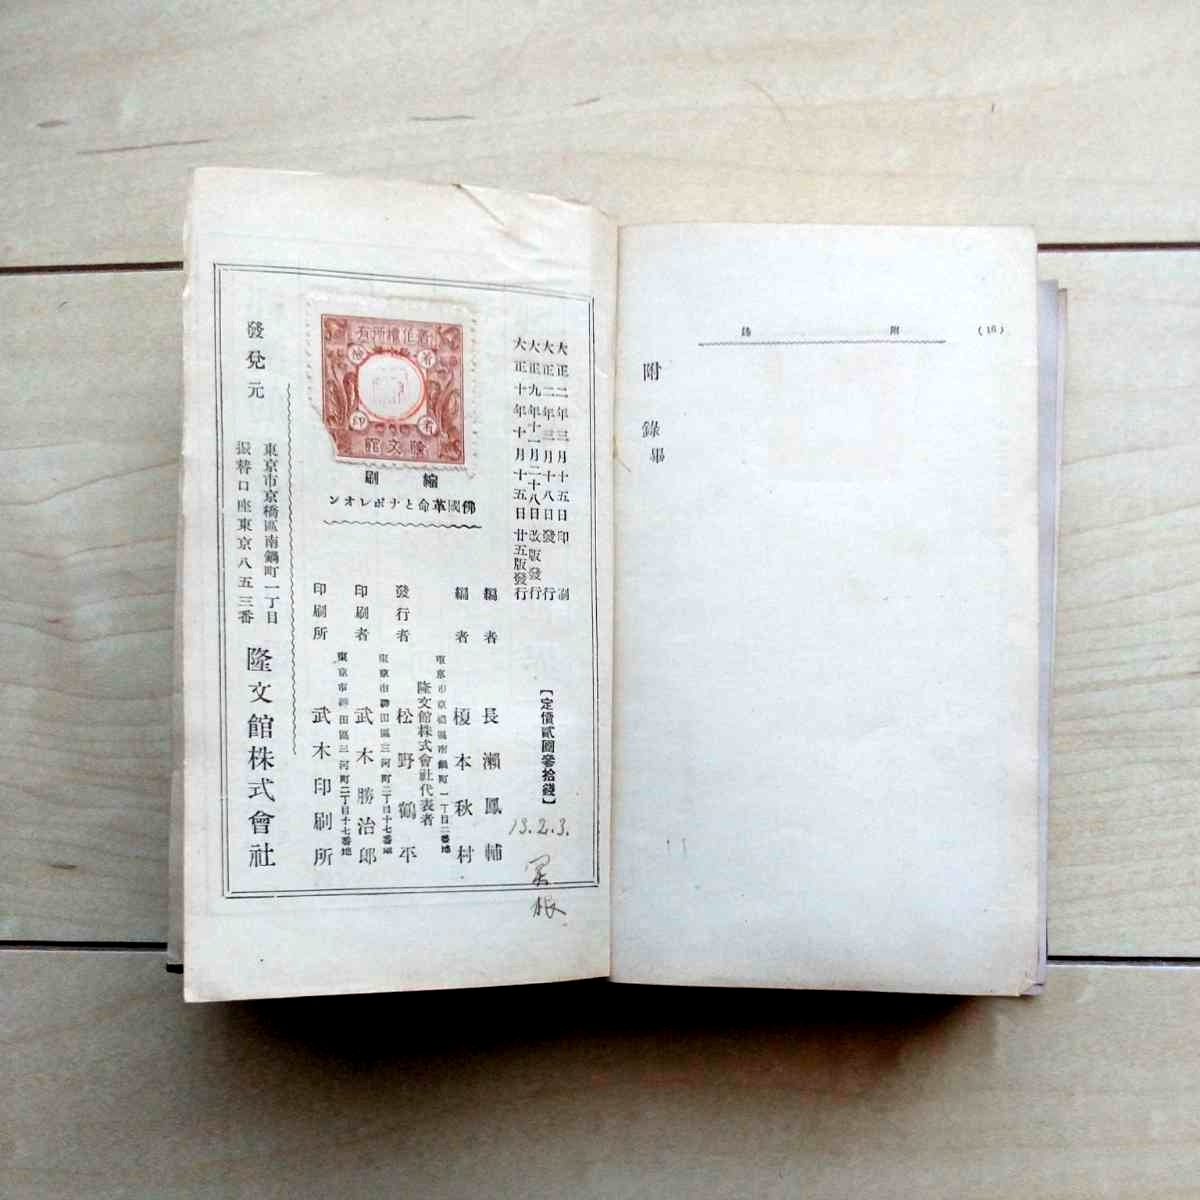 (16)
附
錄
附錄畢
大正二年三月十五日印刷
大正二年三月十八日發行
大正九年十一月二十八日改版發行
大正十年十月十五日廿五版發行
【定價貳圓參拾錢】
13.2.3.
著作權所有
隆文館
縮刷
佛國革命とナポレオン
編者 長瀨鳳輔
編者 榎本秋村
東京市京橋區南鍋町一丁目二番地
隆文館株式會社代表者
發行者 松野鶴平
東京市神田區三河町二丁目十七番地
印刷者 武木勝治郎
東京市神田區三河町二丁目十七番地
印刷所 武木印刷所
發兌元
東京市京橋區南鍋町一丁目
振替口座東京八五三番
隆文館株式會社